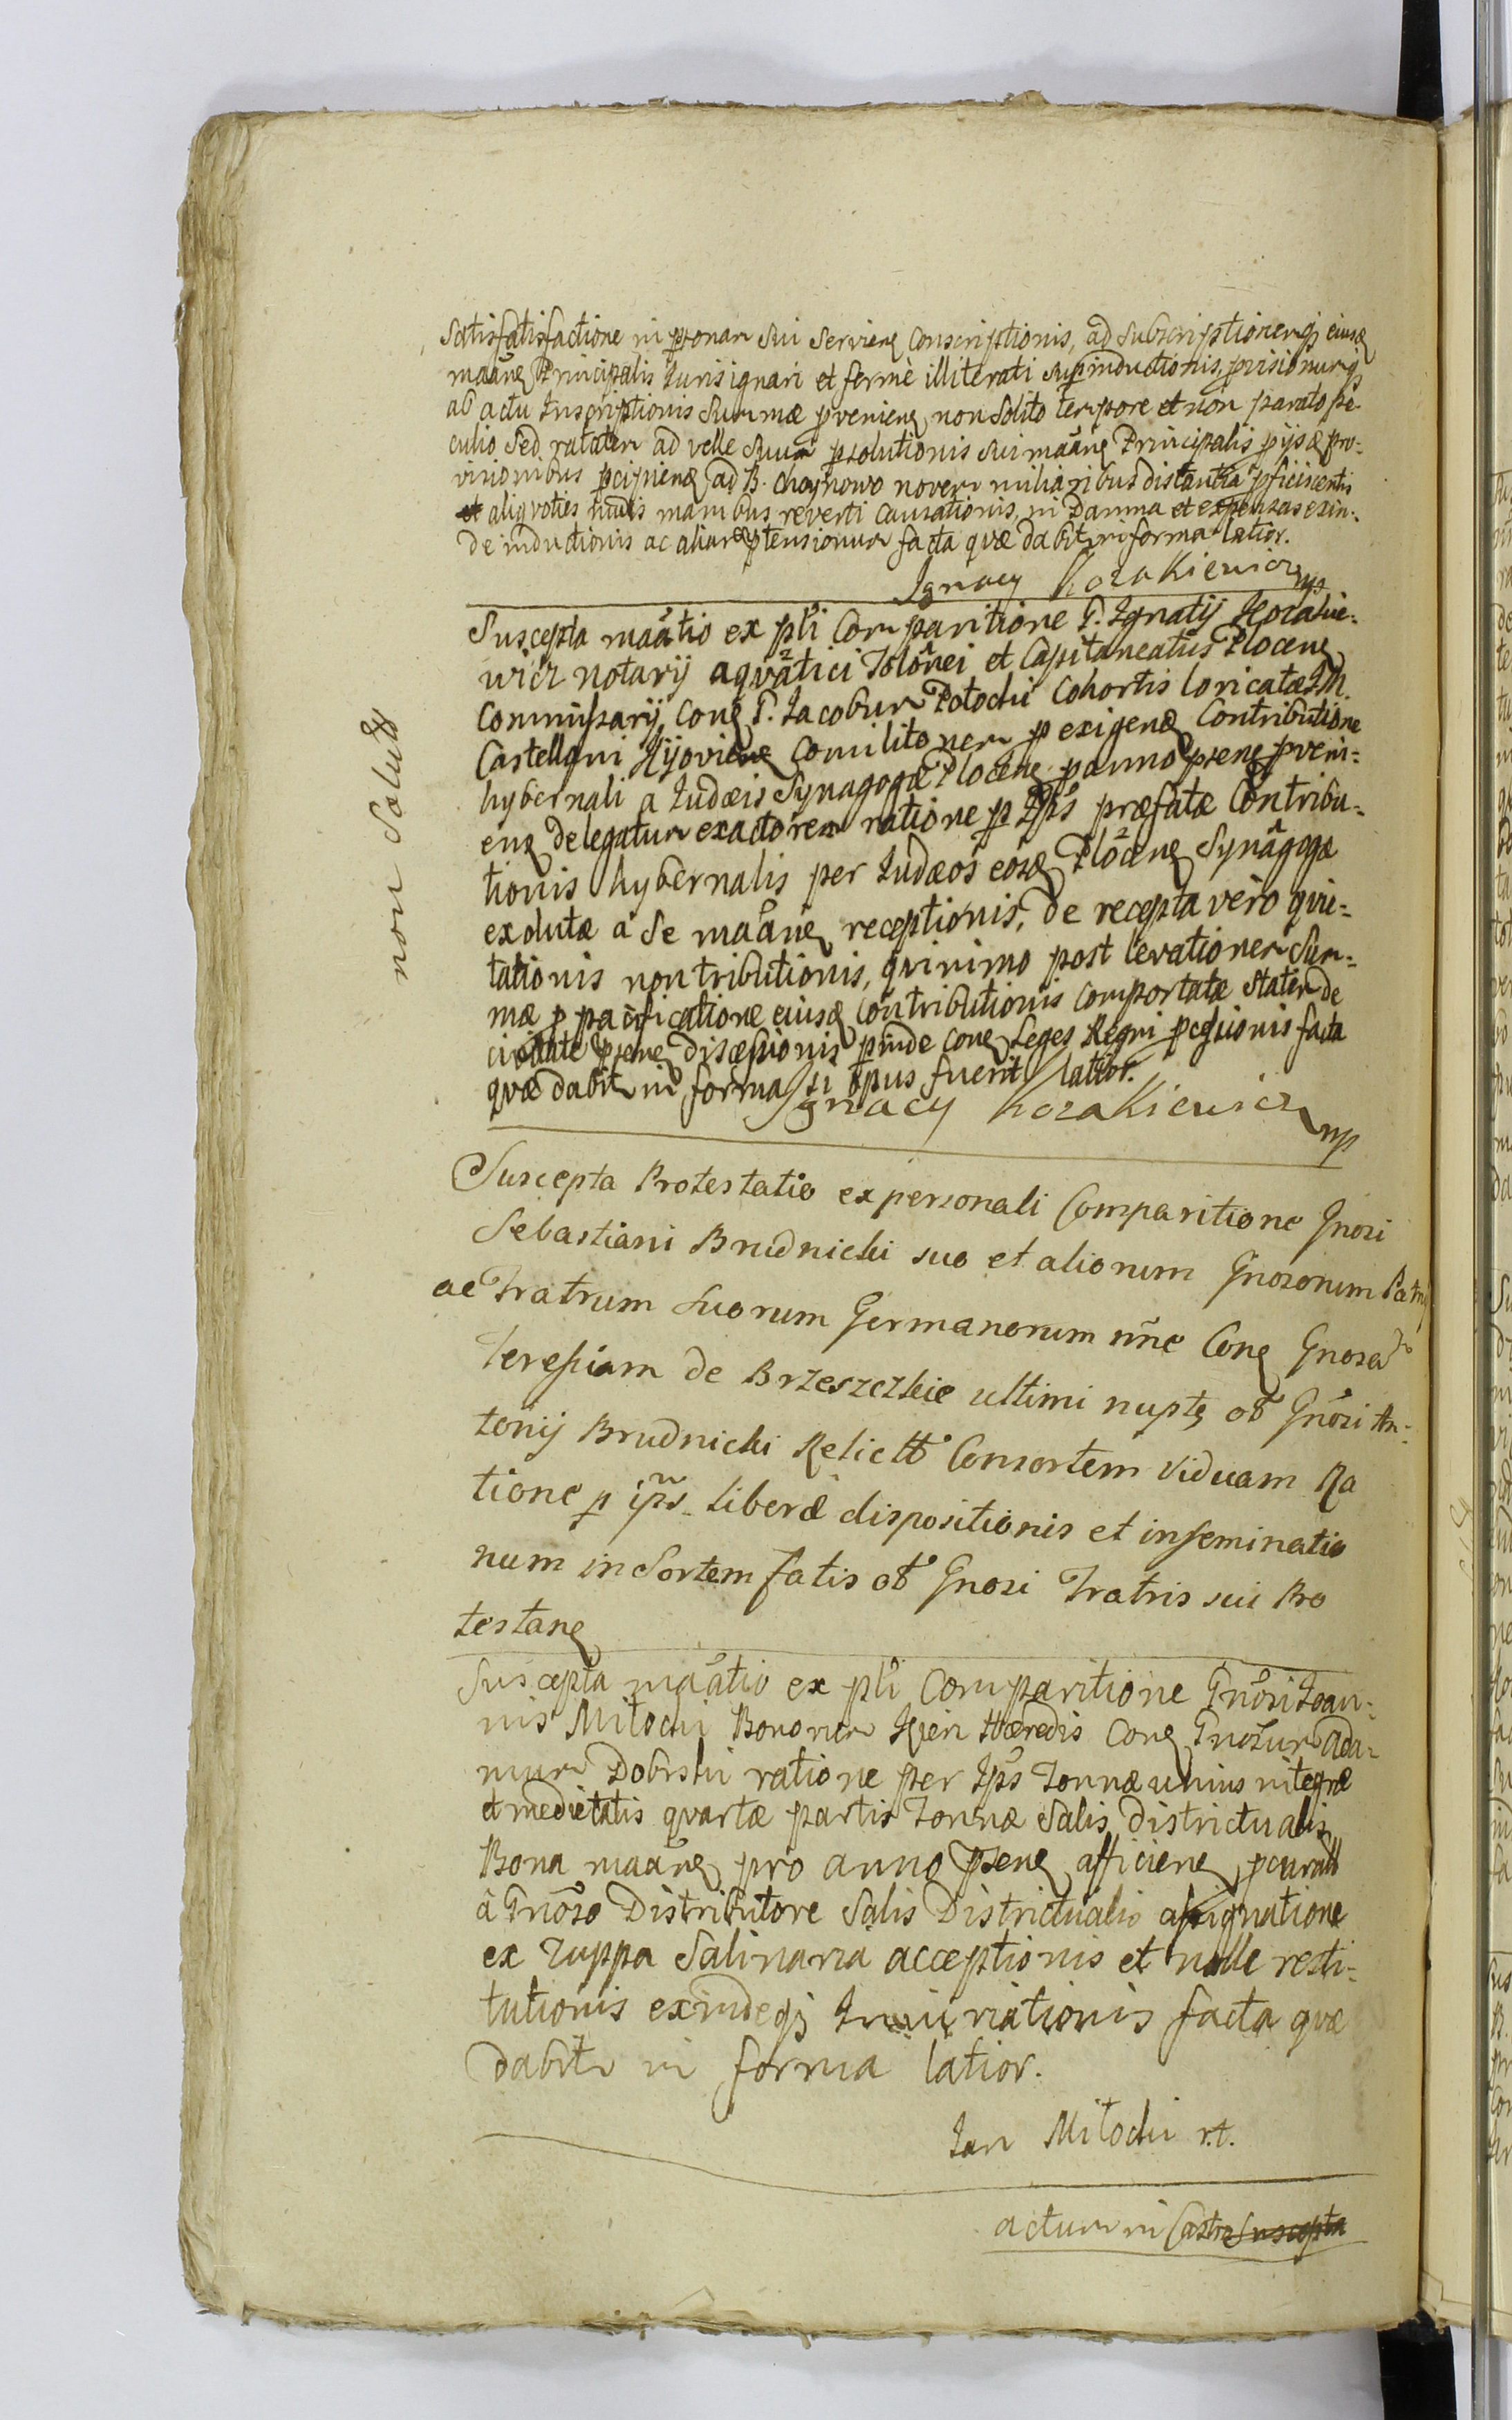 Satisfatisfactione in psonam sui Servieng Conscriptionis, ad Subscriptionemq eiusd
maang Principalis Iuris ignari et fermè illiterati supinductionis, prisionumq
ab actu Inscriptionis Summæ pvenieng non Solito tempore et non parato pe-
culio Sed ratatim ad velle Suum psolutionis sui maang Principalis pijsq pro-
visionibus pcipiend ad B. Choynowo novem miliaribus distantia pficiscentis
et aliqvoties nudis manibus reverti causationis, in Damna et expensas exin-
de inductionis ac aliarq ptensionum facta qvæ dabitr in forma latior.
Ignacy Kozakiewicz mp
Suscepta maãtio ex pli Comparitione G. Ignatij Kozakie-
wicz Notarij aqvatici Tolonei et Capitaneatus Ploceng
Commissarij, Cong G. Iacobum Potocki Cohortis loricatæ IM.
Castellani Kijovieng Comilitonem p exigend Contributione
hybernali a Iudæis Synagogæ Ploceng p anno pseng pveni-
eng delegatum exactorem ratione p Ips præfatæ Contribu-
tionis hybernalis per Iudæos eosd Ploceng Synagogæ
exolutæ a Se maang receptionis, de recepta vero qvie-
tationis non tributionis, qvinimo post levationem Sum-
mæ p pacificatione eiusd Contributionis comportatæ statim de
civitate pseng discessionis pinde cong Leges Regni pcessionis facta
qvæ dabitr in forma si opus fuerit latior.
Ignacy Kozakiewicz mp
non Solutt
Suscepta Protestatio ex personali Comparitione Gnosi
Sebastiani Brudnicki suo et aliorum Gnosorum
ac Fratrum Suorum Germanorum nne Cong Gnosam
Teressiam de Brzeszczkie ultimi nuptg ol Gnosi An-
tonij Brudnicki Relictt Consortem Viduam Ra
tione p ips liberæ dispositionis et inseminatio
num in Sortem fatis ol Gnosi Fratris sui Pro
testang
Suscepta maãtio ex pli Comparitione Gnosi Ioan-
nis Miłocki Bonorum Hæredis Cong Gnosum Ada-
mum Dobrski ratione per Ips Tonnæ unius integræ
et medietatis qvartæ partis Tonnæ Salis Districtualis
Bona maang pro anno pseng afficieng pcuratt
à Gnoso Distributore Salis Districtualis assignatione
ex zuppa Salinaria acceptionis et nolle resti-
tutionis exindeq Iniuriationis facta qvæ
dabitr in forma latior.
Jan Miłocki r.t.
actum in Castro Suscepta